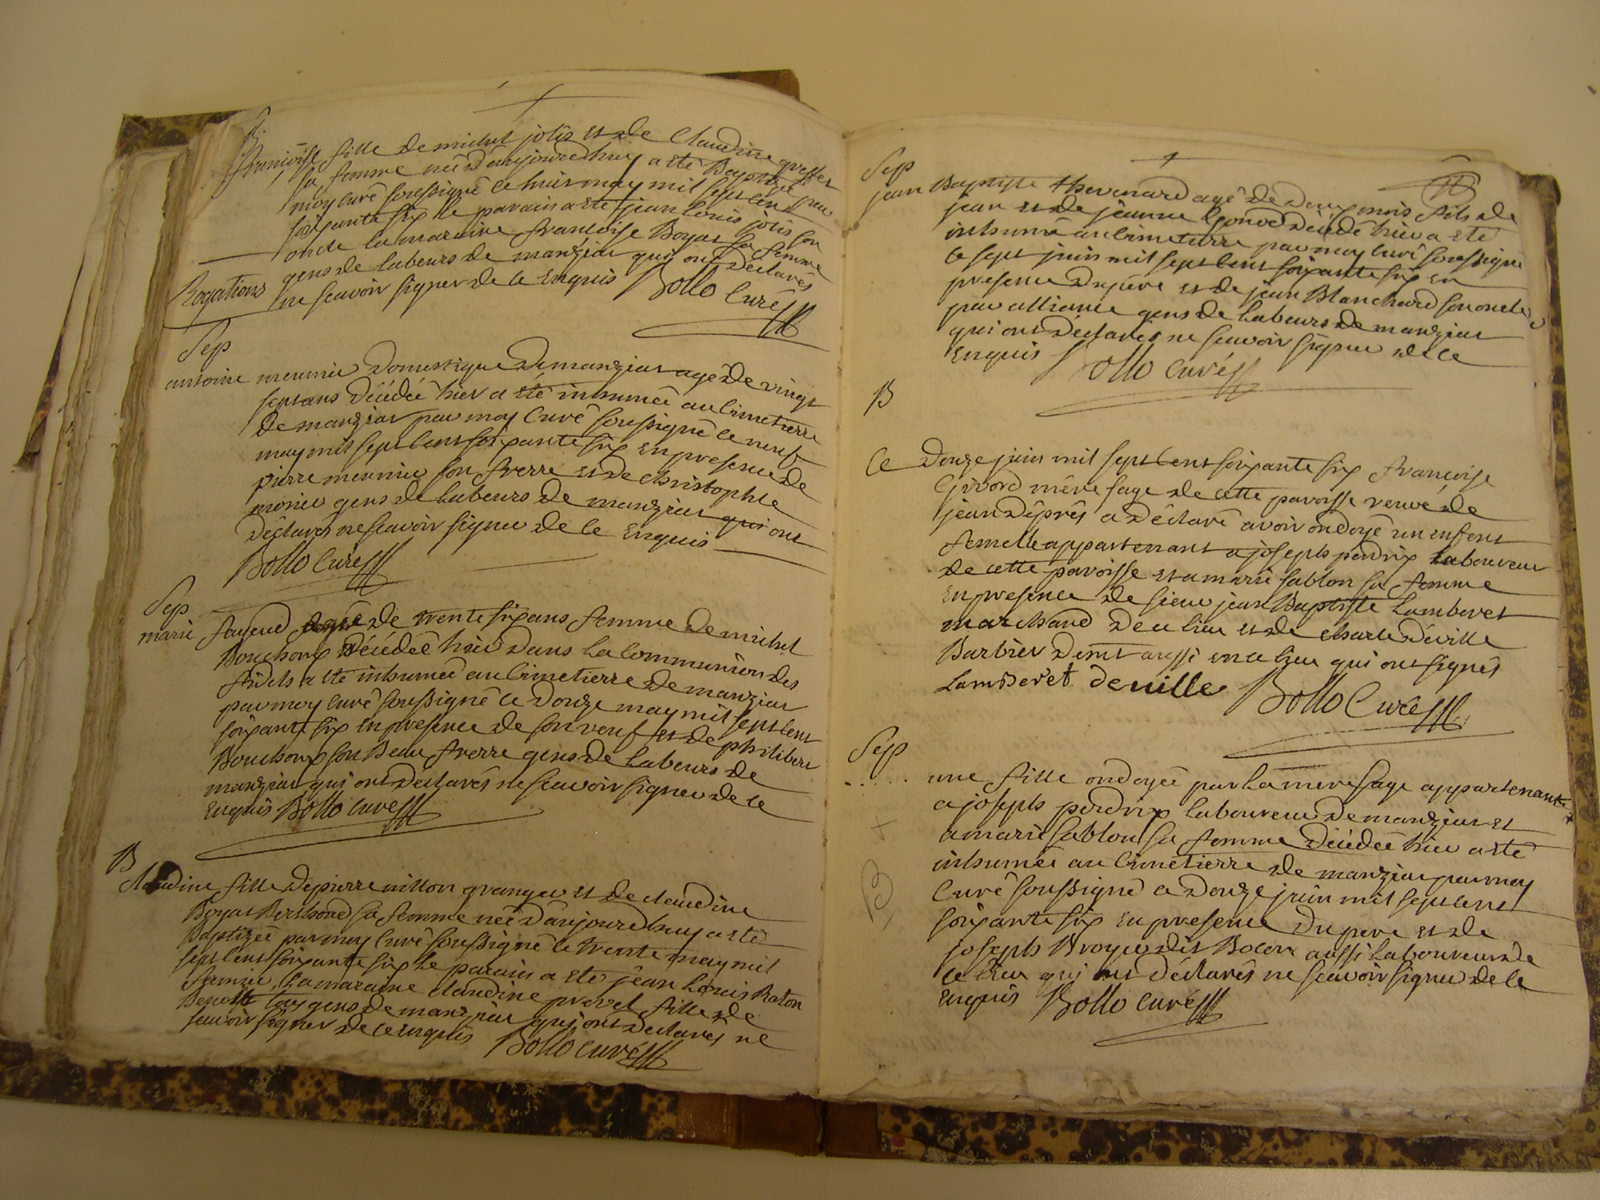 B
françoise fille de michel jolis et de Claudine
sa femme née d'aujourdhuy a eté Baptisée par
moy curé soussigné le huit may mil sept cent
soixante six le parain a eté jean louis jolis son
oncle la maraine françoise Boyat sa femme
gens de labeurs de manziat qui ont declarés
Rogations
ne scavoir signer de ce Enquis Bollo Curé
Sep
antoine meunier Domestique de manziat agé de vingt
sept ans décédé hier a eté inhumé au cimetierre
de manziat par moy Curé soussigné le neuf
may mil sept cent soixante six en presence de
pierre meunier son frerre et de christophle
monier gens de labeurs de manziat qui ont
déclarés ne scavoir signer de ce Enquis
Bollo Curé
Sep
marie agée de trente six ans femme de michel
Bouchoux décédée hier dans la Communion des
fidels a eté inhumée au cimetierre de manziat
par moy curé soussigné le douze may mil sept cent
soixante six en presence de son veuf et de philibert
Bouchoux son Beau frerre gens de labeurs de
manziat qui ont declarés ne scavoir signer de ce
Enquis Bollo Curé
B
Claudine fille de pierre granger et de claudine
Boyat sa femme née d'aujourdhuy a eté
Baptizée par moy curé soussigné le trente may mil
sept cent soixante six le parain a eté jean louis Baton
fermier la maraine claudine fille de
Benoit gens de manziat qui ont declarés ne
scavoir signer de ce enquis Bollo curé
Sep
jean Baptiste thevenard agé de deux mois fils de
jean et de jeanne décédé hier a eté
inhumé au cimetierre par moy Curé soussigné
le sept juin mil sept cent soixante six en
presence du pere et de jean Blanchard son oncle
par alliance gens de labeurs de manziat
qui ont déclarés ne scavoir signer de ce
Enquis Bollo Curé
B
Ce Douze juin mil sept cent soixante six françoise
Givord mére sage de cette paroisse veuve de
jean Déprés a déclaré avoir ondoyé un enfent
femelle appartenant a joseph perdrix laboureur
de cette paroisse et a marie sablon sa femme
en presence de sieur jean Baptiste Lamberet
marchand de ce lieu et de charle déville
Barbier demt aussi en ce lieu qui ont signés
Lamberet deville Bollo Curé
Sep
une fille ondoyée par la mere sage appartenante
a joseph perdrix laboureur de manziat et
a marie sablon sa femme décédée hier a eté
inhumée au cimetierre de manziat par moy
Curé soussigné ce douze juin mil sept cent
soixante six en presence du pere et de
joseph Broyer dit Bocon aussi laboureur de
ce lieu qui ont déclarés ne scavoir signer de ce
enquis Bollo curé